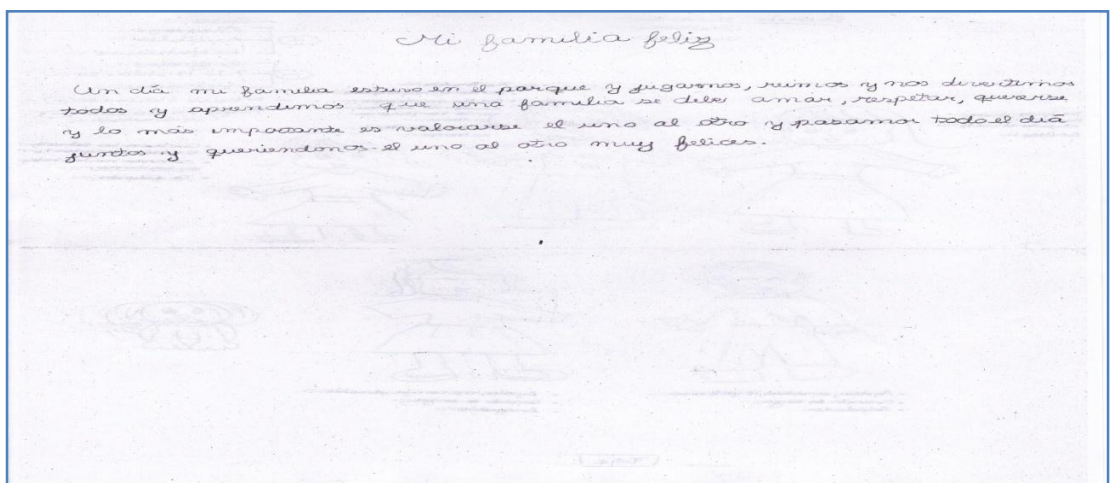 Mi familia feliz
Un día mi familia estuvo en el parque y jugamos, reimos y nos divertimos
todos y aprendimos que una familia se debe amar, respetar, quererse
y lo más importante es valorarse el uno al otro y pasamos todo el día
juntos y queriendonos el uno al otro muy felices.